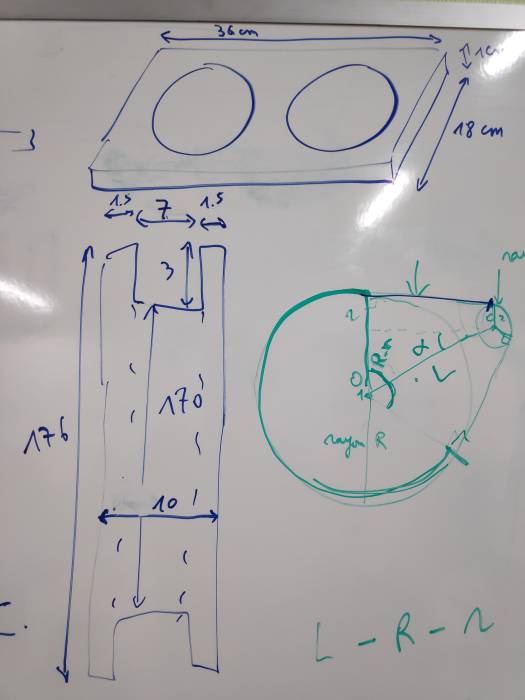 36cm
1cm
18 cm
1.5 7 1.5
3
170
176
10
r
α
R-r
O
L
rayon R
L - R - r